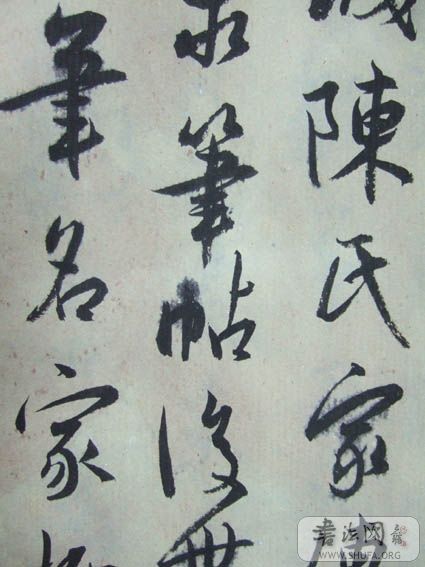 陳氏家
求筆帖後世
筆名家
書法网
WWW.SHUFA.ORG